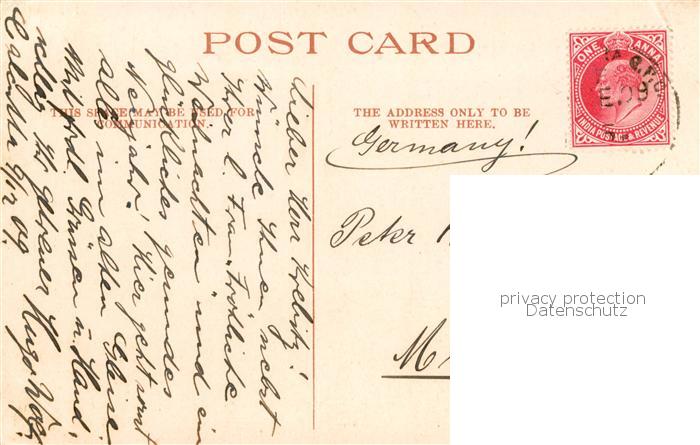 POST CARD
THIS SPACE MAY BE USED FOR
COMMUNICATION.
THE ADDRESS ONLY TO BE
WRITTEN HERE.
ONE ANNA
INDIA POSTAGE & REVENUE
G.P.O
Germany!
Peter
M
privacy protection
Datenschutz
Lieber Herr
Wünsche Ihnen nebst
Ihrer l. Frau Fröhliche
Weihnachten und ein
glückliches gesundes
Neujahr! Hier geht sonst
alles im alten Gleise.
Mit frdl. Grüssen u. Hand-
Ihr getreuer Hugo
Calcutta 9/12 09.